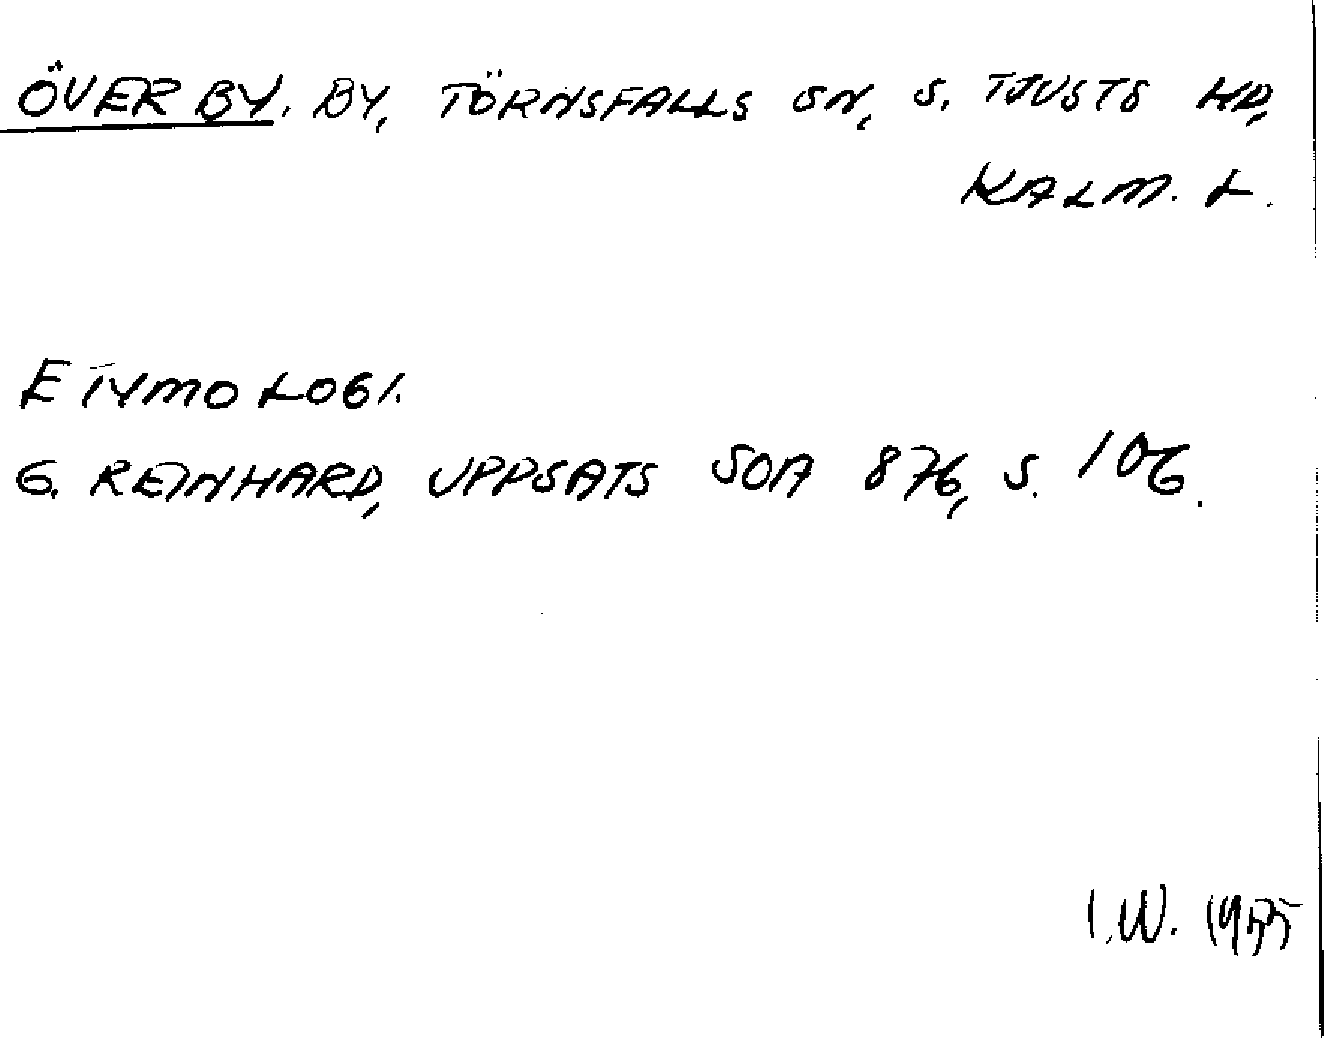 ÖVERBY. BY, TÖRNSFALLS SN, S. TJUSTS HD,
KALM. L.
ETYMOLOGI.
G. REINHARD, UPPSATS SOA 876, S. 106.
I.W. 1955